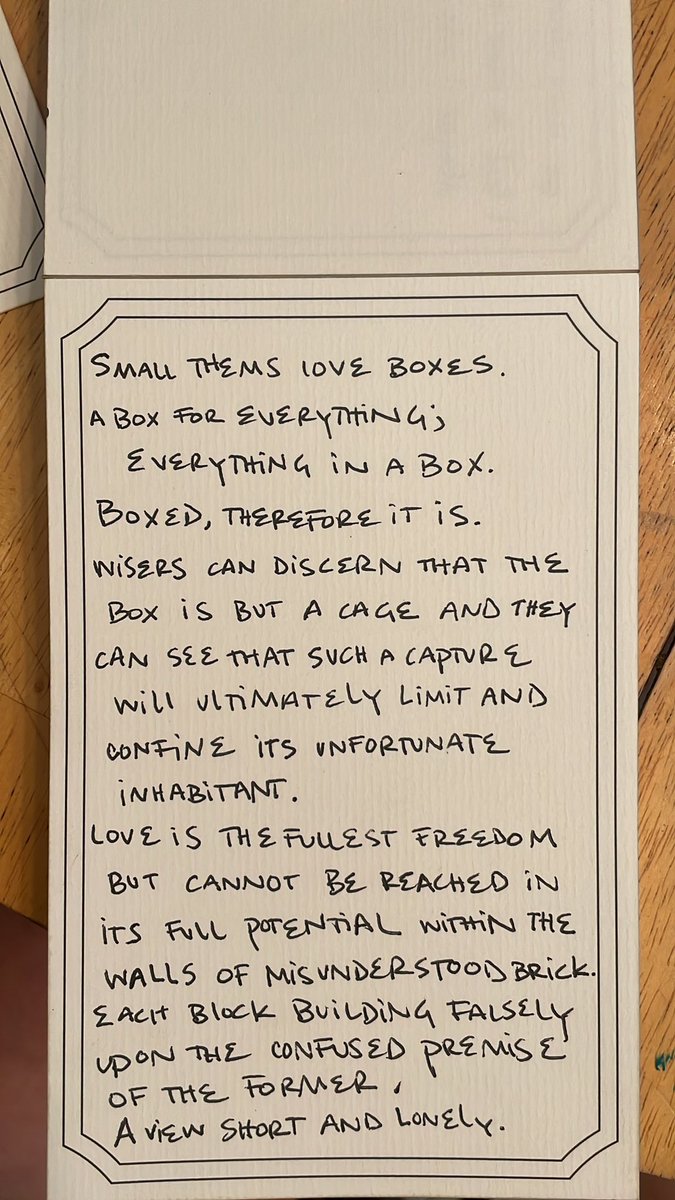 SMALL THEMS LOVE BOXES.
A BOX FOR EVERYTHING;
EVERYTHING IN A BOX.
BOXED, THEREFORE IT IS.
WISERS CAN DISCERN THAT THE
BOX IS BUT A CAGE AND THEY
CAN SEE THAT SUCH A CAPTURE
WILL ULTIMATELY LIMIT AND
CONFINE ITS UNFORTUNATE
INHABITANT.
LOVE IS THE FULLEST FREEDOM
BUT CANNOT BE REACHED IN
ITS FULL POTENTIAL WITHIN THE
WALLS OF MISUNDERSTOOD BRICK.
EACH BLOCK BUILDING FALSELY
UPON THE CONFUSED PREMISE
OF THE FORMER,
A VIEW SHORT AND LONELY.